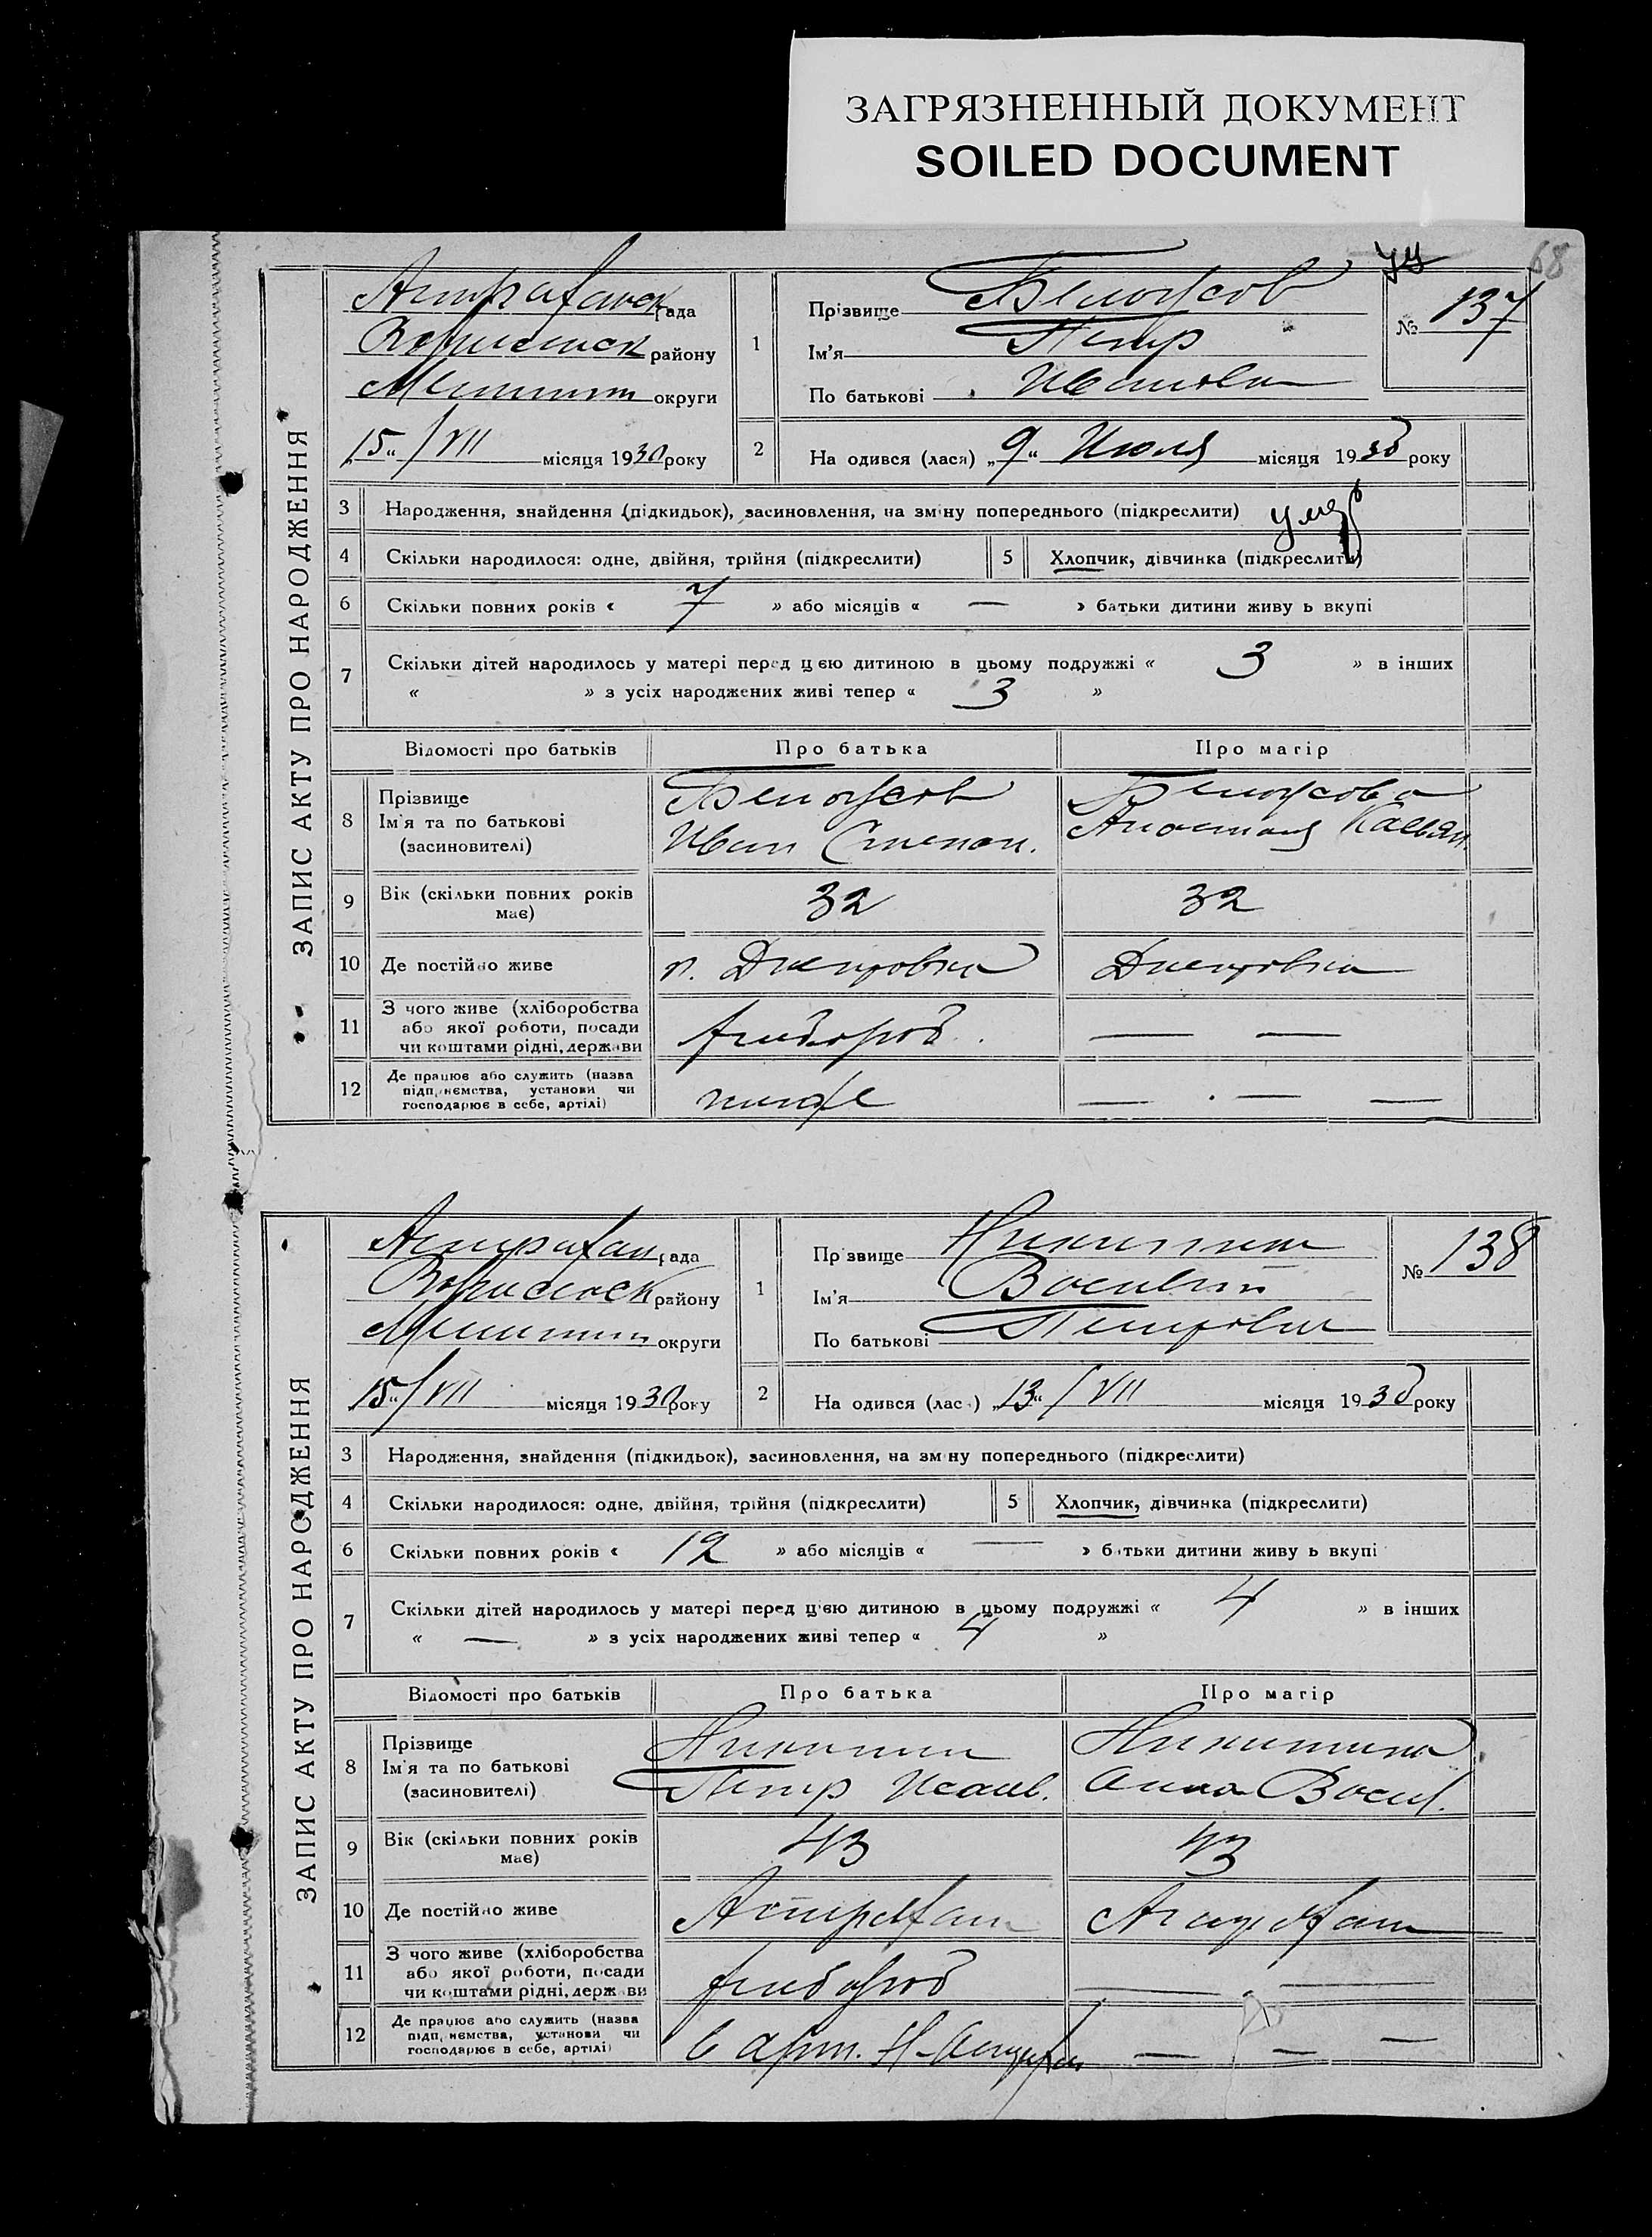 ЗАГРЯЗНЕННЫЙ ДОКУМЕНТ
SOILED DOCUMENT
68
ЗАПИС АКТУ ПРО НАРОДЖЕННЯ
Астраханск рада
району
округи
„15“/VII місяця 1930 року
1
Прізвище Белоусов
Ім'я Петр
По батькові Иванов
№ 137
2
На одився (лася) „9“ Июля місяця 1930 року
3 Народження, знайдення (підкидьок), засиновлення, на зміну попереднього (підкреслити) умер
4 Скільки народилося: одне, двійня, трійня (підкреслити) 5 Хлопчик, дівчинка (підкреслити)
6 Скільки повних років « 7 » або місяців « — » батьки дитини живу ь вкупі
7 Скільки дітей народилось у матері перед цєю дитиною в цьому подружжі « 3 » в інших
« » з усіх народжених живі тепер « 3 »
Відомості про батьків Про батька Про матір
8 Прізвище
Ім'я та по батькові
(засиновителі)
Белоусов
Иван Степан.
Белоусова
9 Вік (скільки повних років має) 32 32
10 Де постійно живе п. Днепровка Днепровка
11 З чого живе (хліборобства
або якої роботи, посади
чи коштами рідні, держави
хлебороб. — —
12 Де працює або служить (назва
підприємства, установи чи
господарює в себе, артілі)
— — —
ЗАПИС АКТУ ПРО НАРОДЖЕННЯ
Астрахан рада
району
округи
„15“/VII місяця 1930 року
1
Пр звище Никитин
Ім'я Василий
По батькові Петрович
№ 138
2
На одився (лас ) „13“/VII місяця 1930 року
3 Народження, знайдення (підкидьок), засиновлення, на зм ну попереднього (підкреслити)
4 Скільки народилося: одне, двійня, трійня (підкреслити) 5 Хлопчик, дівчинка (підкреслити)
6 Скільки повних років « 12 » або місяців « — » батьки дитини живу ь вкупі
7 Скільки дітей народилось у матері перед цєю дитиною в цьому подружжі « 4 » в інших
« — » з усіх народжених живі тепер « 4 »
Відомості про батьків Про батька Про матір
8 Прізвище
Ім'я та по батькові
(засиновителі)
Никитин
Петр Исаев.
Никитина
Анна Васил.
9 Вік (скільки повних років має) 43 43
10 Де постійно живе Астрахан Астрахан
11 З чого живе (хліборобства
або якої роботи, посади
чи коштами рідні, держ ви
хлебороб — —
12 Де працює або служить (назва
підприємства, установи чи
господарює в себе, артілі)
в арт. Н-Астрахан — — —